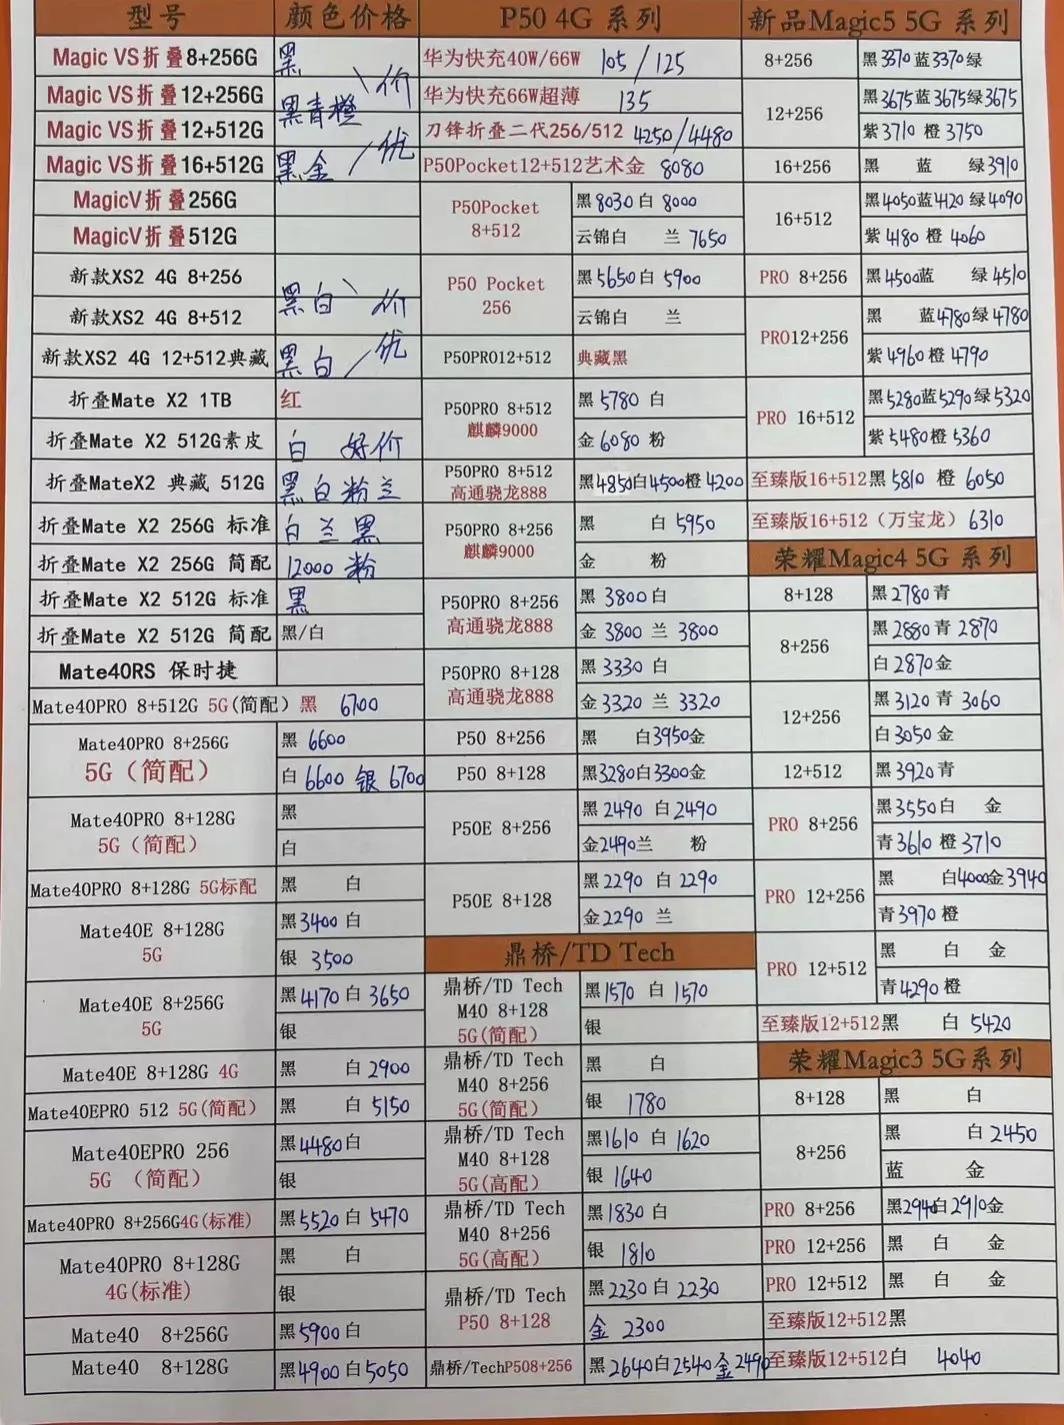 型号 颜色价格
Magic VS折叠8+256G 黑
Magic VS折叠12+256G 黑青橙
Magic VS折叠12+512G
优价
Magic VS折叠16+512G 黑金
MagicV折叠256G
MagicV折叠512G
新款XS2 4G 8+256
新款XS2 4G 8+512 黑白
优价
新款XS2 4G 12+512典藏 黑白
折叠Mate X2 1TB 红
折叠Mate X2 512G素皮 白 好价
折叠MateX2 典藏 512G 黑白粉兰
折叠Mate X2 256G 标准 白兰黑
折叠Mate X2 256G 简配 12000 粉
折叠Mate X2 512G 标准 黑
折叠Mate X2 512G 简配 黑/白
Mate40RS 保时捷
Mate40PRO 8+512G 5G(简配) 黑 6700
Mate40PRO 8+256G
5G(简配)
黑 6600
白 6600 银 6700
Mate40PRO 8+128G
5G(简配)
黑
白
Mate40PRO 8+128G 5G标配 黑 白
Mate40E 8+128G
5G
黑3400白
银 3500
Mate40E 8+256G
5G
黑4170白3650
银
Mate40E 8+128G 4G 黑 白2900
Mate40EPRO 512 5G(简配) 黑 白5150
Mate40EPRO 256
5G (简配)
黑4480白
银
Mate40PRO 8+256G4G(标准) 黑5520白5470
Mate40PRO 8+128G
4G(标准)
黑 白
银
Mate40 8+256G 黑5900白
Mate40 8+128G 黑4900白5050
P50 4G 系列
华为快充40W/66W 105/125
华为快充66W超薄 135
刀锋折叠二代256/512 4250/4480
P50Pocket12+512艺术金 8080
P50Pocket
8+512
黑8030白 8000
云锦白 兰 7650
P50 Pocket
256
黑5650白 5900
云锦白 兰
P50PRO12+512 典藏黑
P50PRO 8+512
麒麟9000
黑 5780 白
金 6080 粉
P50PRO 8+512
高通骁龙888
黑4850白4500橙4200
P50PRO 8+256
麒麟9000
黑 白5950
金 粉
P50PRO 8+256
高通骁龙888
黑 3800白
金 3800 兰 3800
P50PRO 8+128
高通骁龙888
黑 3330 白
金 3320 兰 3320
P50 8+256 黑 白3950金
P50 8+128 黑3280白3300金
P50E 8+256
黑 2490 白2490
金2490兰 粉
P50E 8+128
黑 2290 白 2290
金2290 兰
鼎桥/TD Tech
鼎桥/TD Tech
M40 8+128
5G(简配)
黑1570 白1570
银
鼎桥/TD Tech
M40 8+256
5G(简配)
黑 白
银 1780
鼎桥/TD Tech
M40 8+128
5G(高配)
黑1610 白 1620
银 1640
鼎桥/TD Tech
M40 8+256
5G(高配)
黑1830白
银 1810
鼎桥/TD Tech
P50 8+128
黑2230白 2230
金 2300
鼎桥/TechP508+256 黑2640白2540金2490
新品Magic5 5G 系列
8+256 黑3370蓝3370绿
12+256
黑3675蓝3675绿3675
紫3710 橙 3750
16+256 黑 蓝 绿3910
16+512
黑4050蓝4120绿4090
紫4180 橙 4060
PRO 8+256 黑4500蓝 绿4510
PRO12+256
黑 蓝4780绿4780
紫4960橙 4790
PRO 16+512
黑5280蓝5290绿5320
紫5480橙5360
至臻版16+512黑 5810 橙 6050
至臻版16+512(万宝龙) 6310
荣耀Magic4 5G 系列
8+128 黑2780青
8+256
黑2880青 2870
白2870金
12+256
黑3120青 3060
白3050金
12+512 黑3920青
PRO 8+256
黑3550白 金
青3610橙3710
PRO 12+256
黑 白4000金3940
青3970橙
PRO 12+512
黑 白 金
青4290橙
至臻版12+512黑 白 5420
荣耀Magic3 5G系列
8+128 黑 白
8+256
黑 白2450
蓝 金
PRO 8+256 黑2940白2910金
PRO 12+256 黑 白 金
PRO 12+512 黑 白 金
至臻版12+512黑
至臻版12+512白 4040